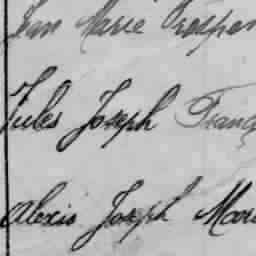 Jean Marie Prosper
Jules Joseph Franç
Alexis Joseph